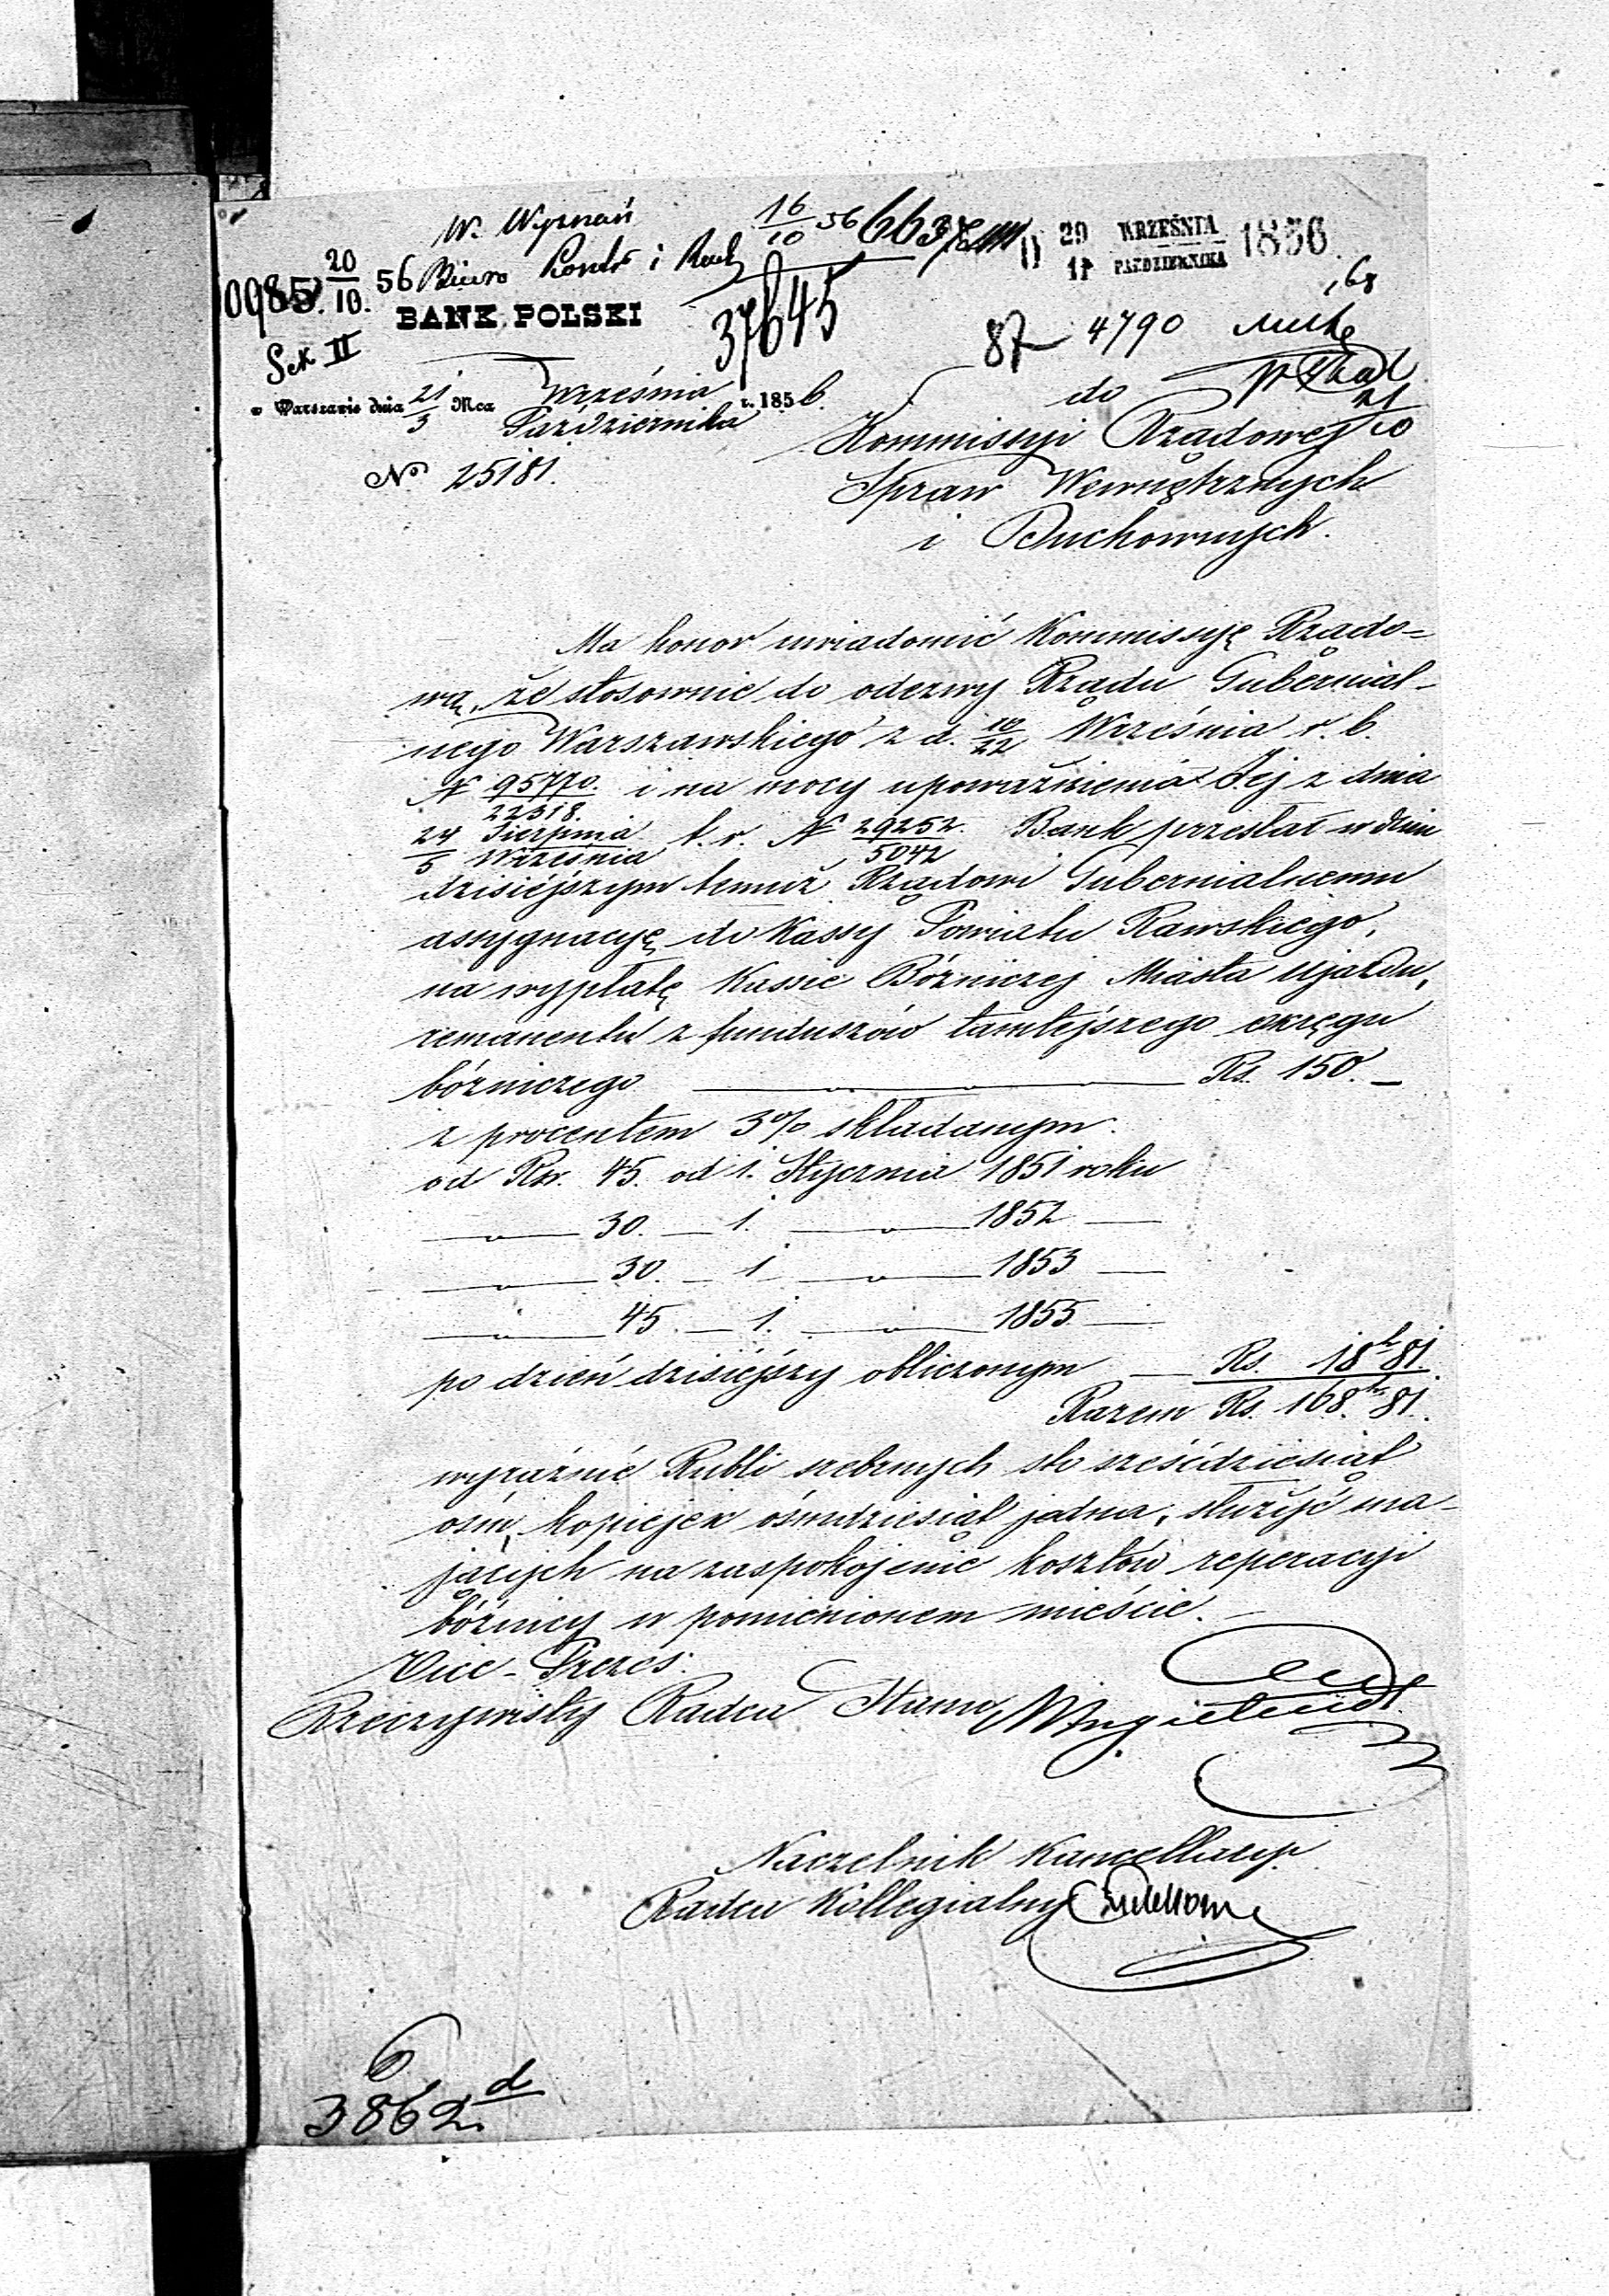 W. Wyznań
16/10 56
29 WRZEŚNIA 1856.
11 PAZDZIERNIKA
20/10. 56 Biuro Kontr i Rach
BANK POLSKI
37645
Sek II
87 4790
w Warszawie dnia 21/3 Mca Września r. 1856.
Października
do
Kommissyi Rządowej
No 25181.
Spraw Wewnętrznych
i Duchownych.
Ma honor uwiadomić Kommissyę Rządo=
wą, że stosownie do odezwy Rządu Gubernial-
nego Warszawskiego z d. 10/22 Września r. b.
N 95770./22318. i na mocy upoważnienia Jej z dnia
24 Sierpnia/5 Września b. r. N 29252./5042 Bank przesłał w dniu
dzisiejszym temuż Rządowi Gubernialnemu
assygnacyę do Kassy Powiatu Rawskiego,
na wypłatę Kassie Bóżniczej Miasta Ujazdu,
remanentu z funduszów tamtejszego okręgu
bóżniczego — „ — „ — Rs. 150. —
z procentem 3% składanym.
od Rsr. 45. od 1. Stycznia 1851 roku
— „ — 30. — 1. — „ — 1852 —
— „ — 30. — 1 — „ — 1853 —
— „ — 45. — 1. — „ — 1855 —
po dzień dzisiejszy obliczonym — Rs. 18 k 81.
Razem Rs. 168. k 81.
wyraźnie Rubli srebrnych sto sześćdziesiąt
ośm, kopiejek ośmdziesiąt jedna, służyć ma-
jących na zaspokojenie kosztów reperacyi
bóżnicy w pomienionem mieście. —
Vice-Prezes.
Rzeczywisty Radca Stanu
Naczelnik Kancellaryi
Radca Kollegialny
6
3862 d